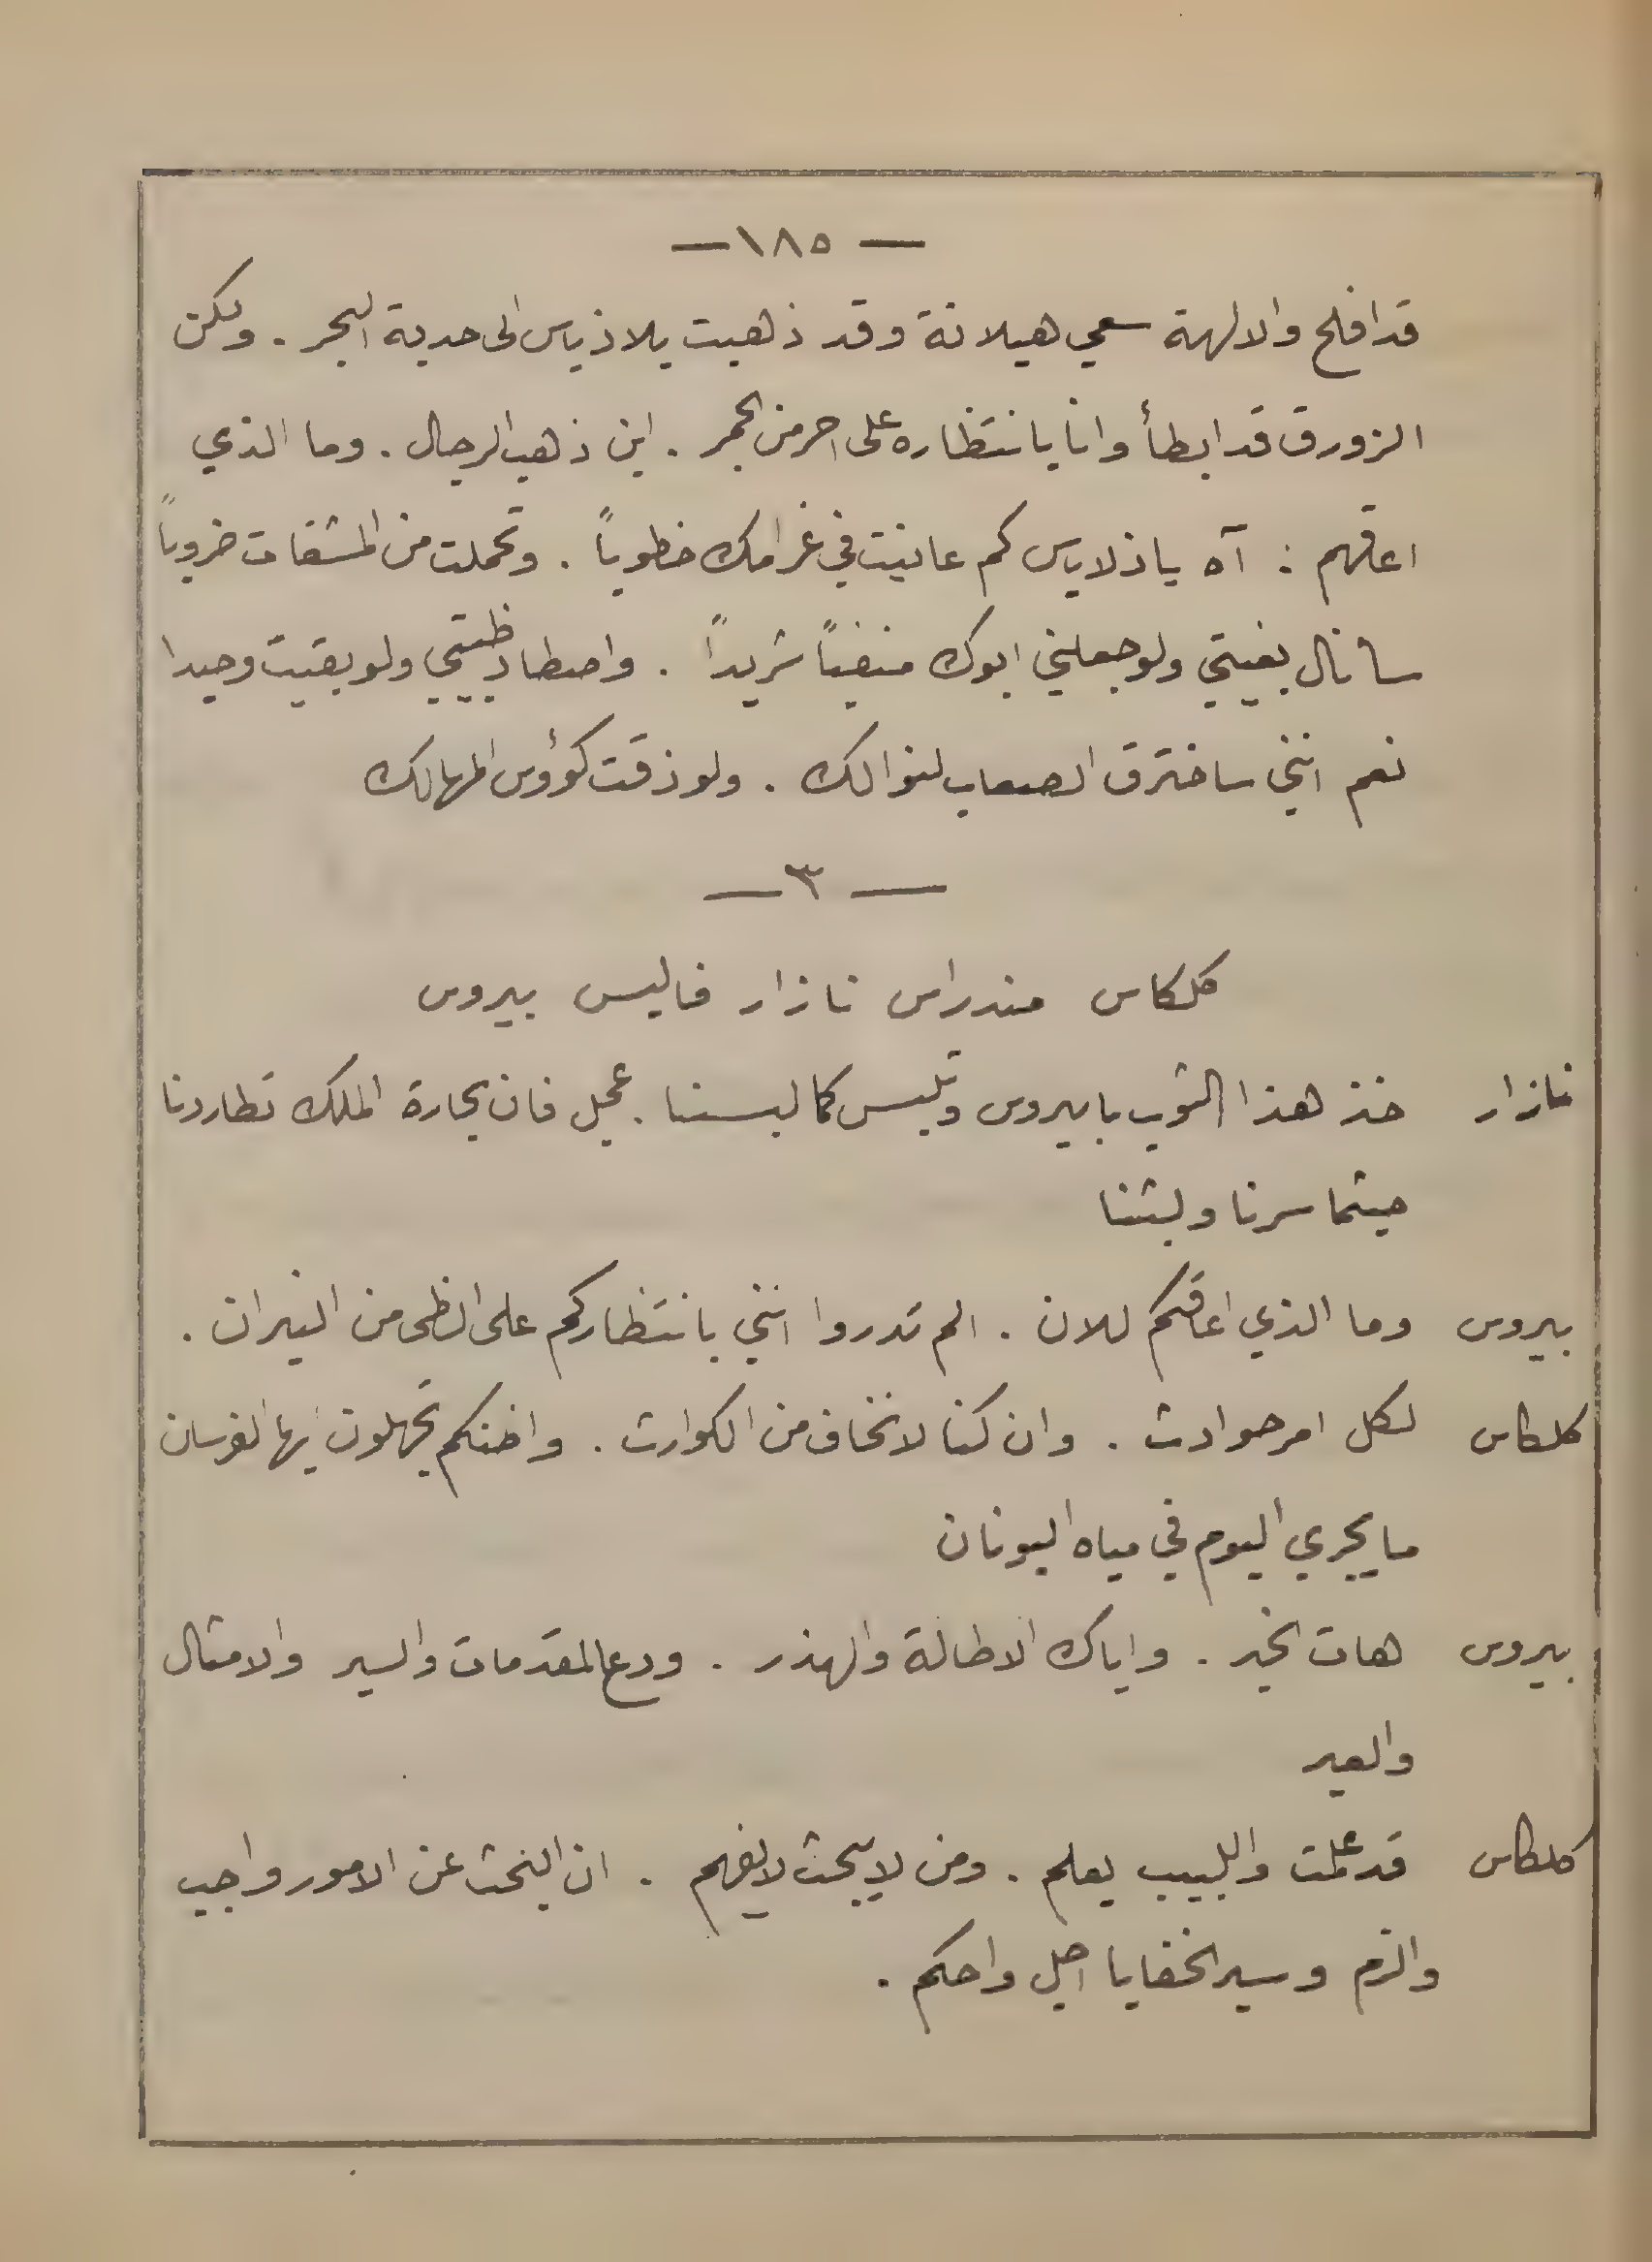 — ١٨٥ —
قد افلح والالهة سعي هيلانة وقد ذهبت بلاذياس الى حدبة البحر . ولكن
الزورق قد ابطأ وانا بانتظاره على احر من الجمر . اين ذهب الرجال . وما الذي
اعاقهم : آه يا ذلاياس كم عانيت في غرامك خطوباً . وتحملت من المشقات ضروباً
سانال بغيتي ولو جعلني ابوك منفياً شريداً . واصطاد ظبيتي ولو بقيت وحيدا
نعم انني ساخترق الصعاب لنوالك . ولو ذقت كؤوس المهالك
— ٣ —
كلكاس مندراس نازار فاليس بيروس
نازار خذ هذا الثوب يا بيروس وتلبس كما لبسنا . عجل فان بحارة الملك تطاردنا
حيثما سرنا ولبثنا
بيروس وما الذي اعاقكم للان . الم تدروا انني بانتظاركم على الظى من النيران .
كلكاس لكل امر حوادث . وان كنا لا نخاف من الكوارث . واظنكم تجهلون ايها الفرسان
ما يجري اليوم في مياه اليونان
بيروس هات الخبر . واياك الاطالة والهذر . ودع المقدمات والسير والامثال
والعبر
كلكاس قد علمت واللبيب يعلم . ومن لا يبحث لا يفهم . ان البحث عن الامور واجب
والزم وسبر الخفايا اجل واحكم .